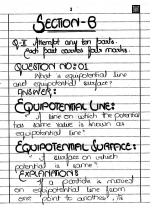 SECTION-B
Q.II Attempt any ten parts.
Each part carries four marks.
QUESTION NO:01
What is equipotential line
and equipotential surface?
ANSWER:
EQUIPOTENTIAL LINE:
A line on which the potential
has same value is known as
equipotential line.
EQUIPOTENTIAL SURFACE:
A surface on which
potential is same.
EXPLANATION:
If a particle is moved
on equipotential line from
one point to another, its